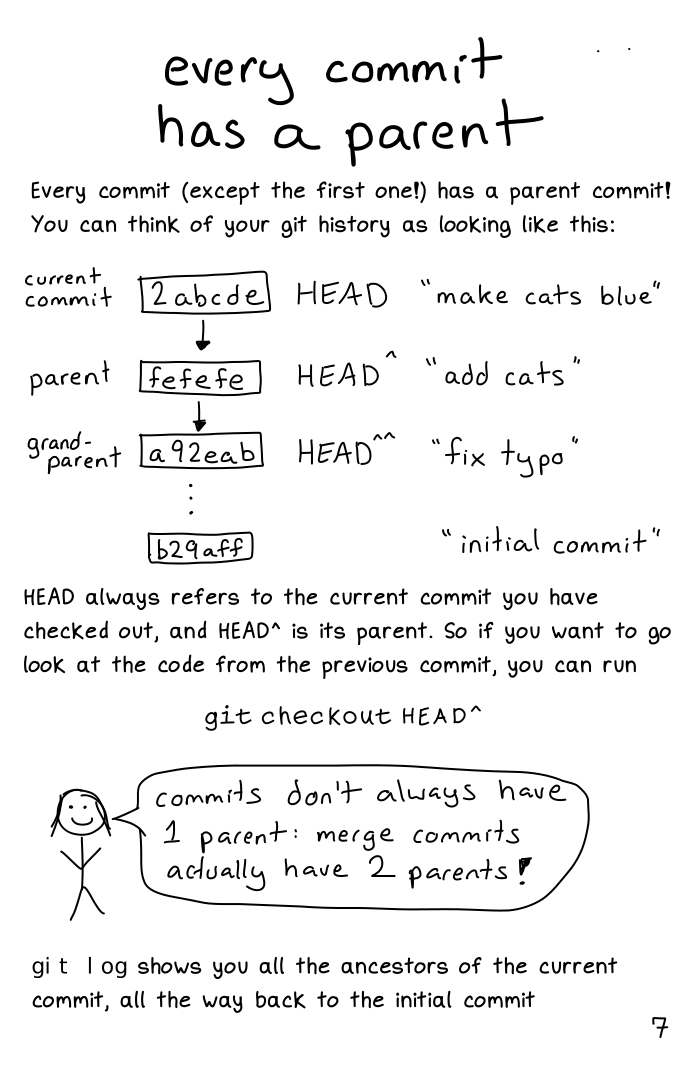 every commit
has a parent
Every commit (except the first one!) has a parent commit!
You can think of your git history as looking like this:
current
commit 2abcde HEAD "make cats blue"
parent fefefe HEAD^ "add cats"
grand-
parent a92eab HEAD^^ "fix typo"
b29aff "initial commit"
HEAD always refers to the current commit you have
checked out, and HEAD^ is its parent. So if you want to go
look at the code from the previous commit, you can run
git checkout HEAD^
commits don't always have
1 parent: merge commits
actually have 2 parents!
git log shows you all the ancestors of the current
commit, all the way back to the initial commit
7